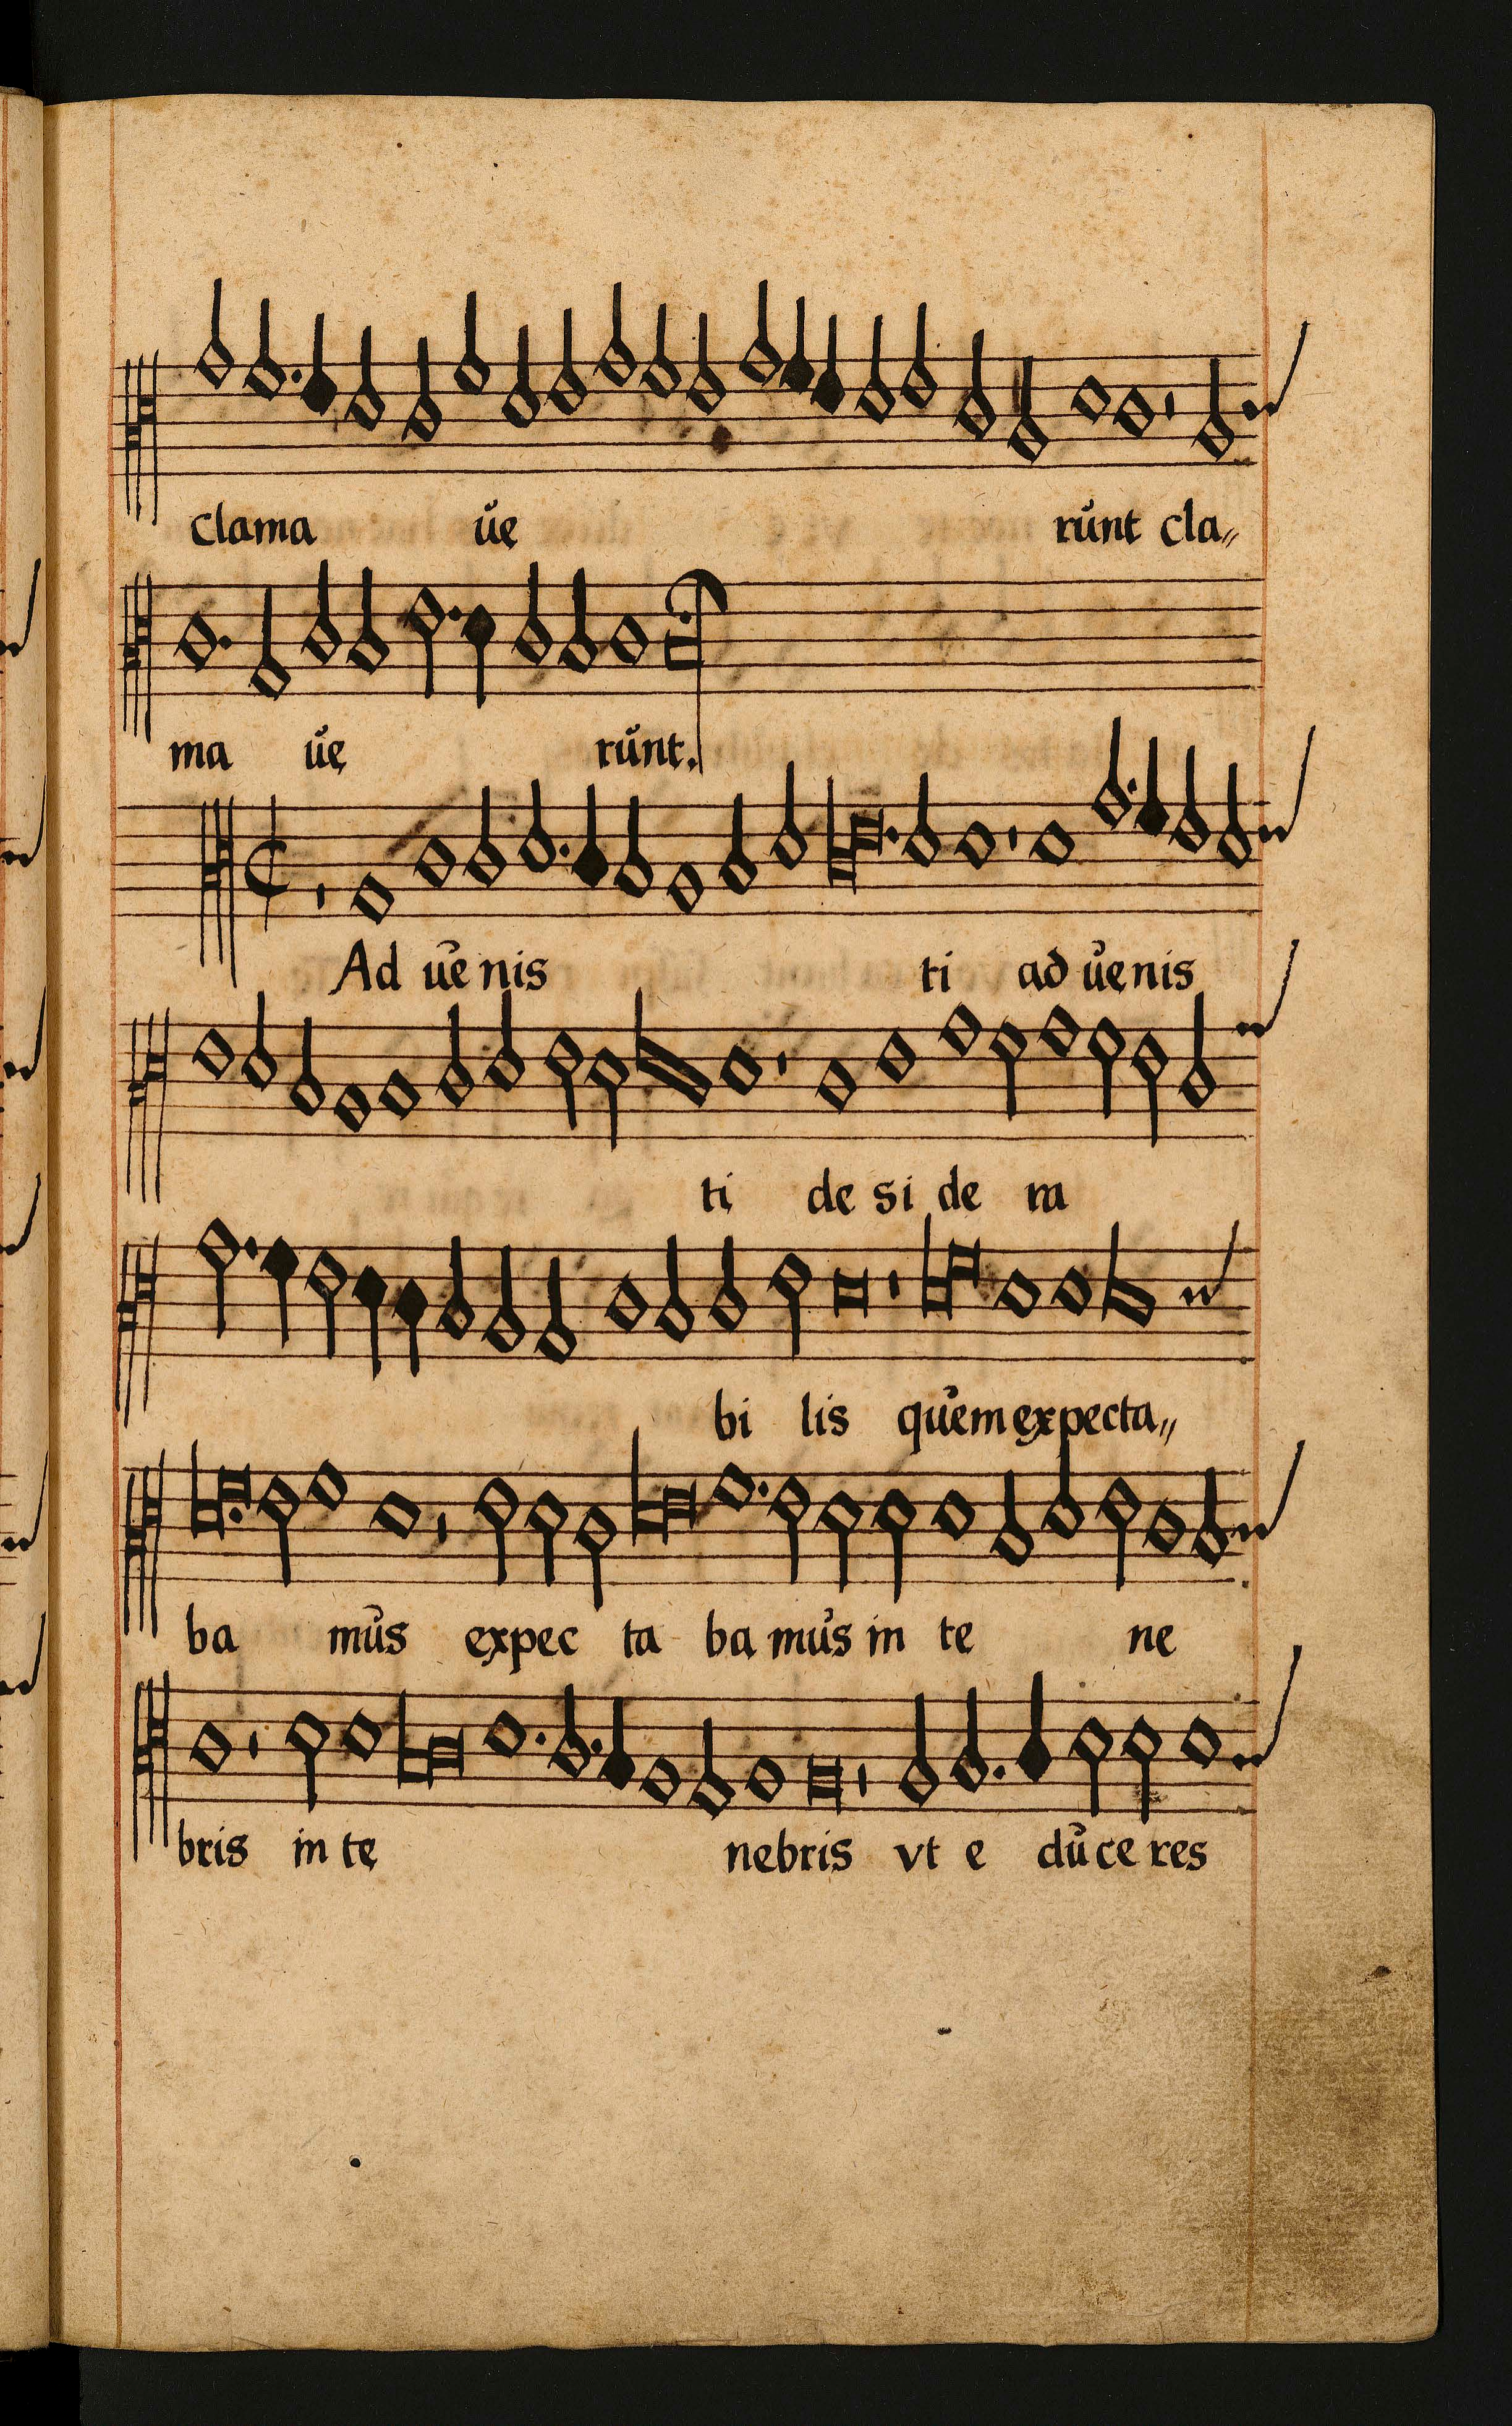 clama ůe růnt cla„
ma ůe růnt.
Ad ůe nis ti ad ůe nis
ti de si de ra
bi lis qůem expecta„
ba můs expec ta ba můs in te ne
bris in te nebris vt e dů ce res